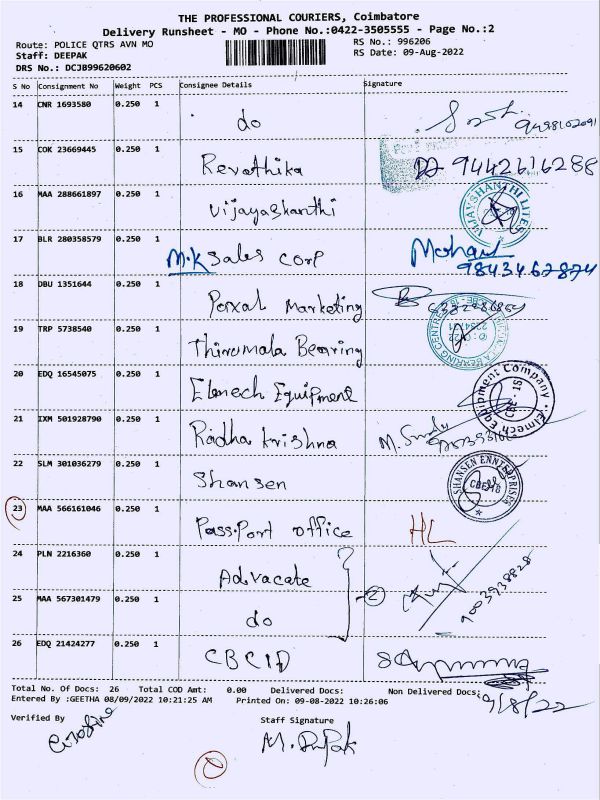 THE PROFESSIONAL COURIERS, Coimbatore
Delivery Runsheet - MO - Phone No.:0422-3505555 - Page No.:2
Route: POLICE QTRS AVN MO
RS No.: 996206
Staff: DEEPAK
RS Date: 09-Aug-2022
DRS No.: DCJB99620602
S No Consignment No Weight PCS Consignee Details Signature
14 CNR 1693580 0.250 1 do
15 COK 23669445 0.250 1 Revathika 9442616288
16 MAA 288661897 0.250 1 Vijayashanthi VIJAYSHANTHI LITES
17 BLR 280358579 0.250 1 M.K Sales Corp Mohan
9843462874
18 DBU 1351644 0.250 1 Porxal Marketing
19 TRP 5738540 0.250 1 Thirumala Bearing
20 EDQ 16545075 0.250 1 Elmech Equipment Elmech Equipment Company CBE-18
21 IXM 501928790 0.250 1 Radha Krishna
22 SLM 301036279 0.250 1 Shansen SHANSEN ENNTERPRISES CBE-18
23 MAA 566161046 0.250 1 Pass.Port office HL
24 PLN 2216360 0.250 1 Advacate 2 9003938828
25 MAA 567301479 0.250 1 do
26 EDQ 21424277 0.250 1 CBCID
Total No. Of Docs: 26 Total COD Amt: 0.00 Delivered Docs: Non Delivered Docs:
Entered By :GEETHA 08/09/2022 10:21:25 AM Printed On: 09-08-2022 10:26:06 9/8/22
Verified By Staff Signature